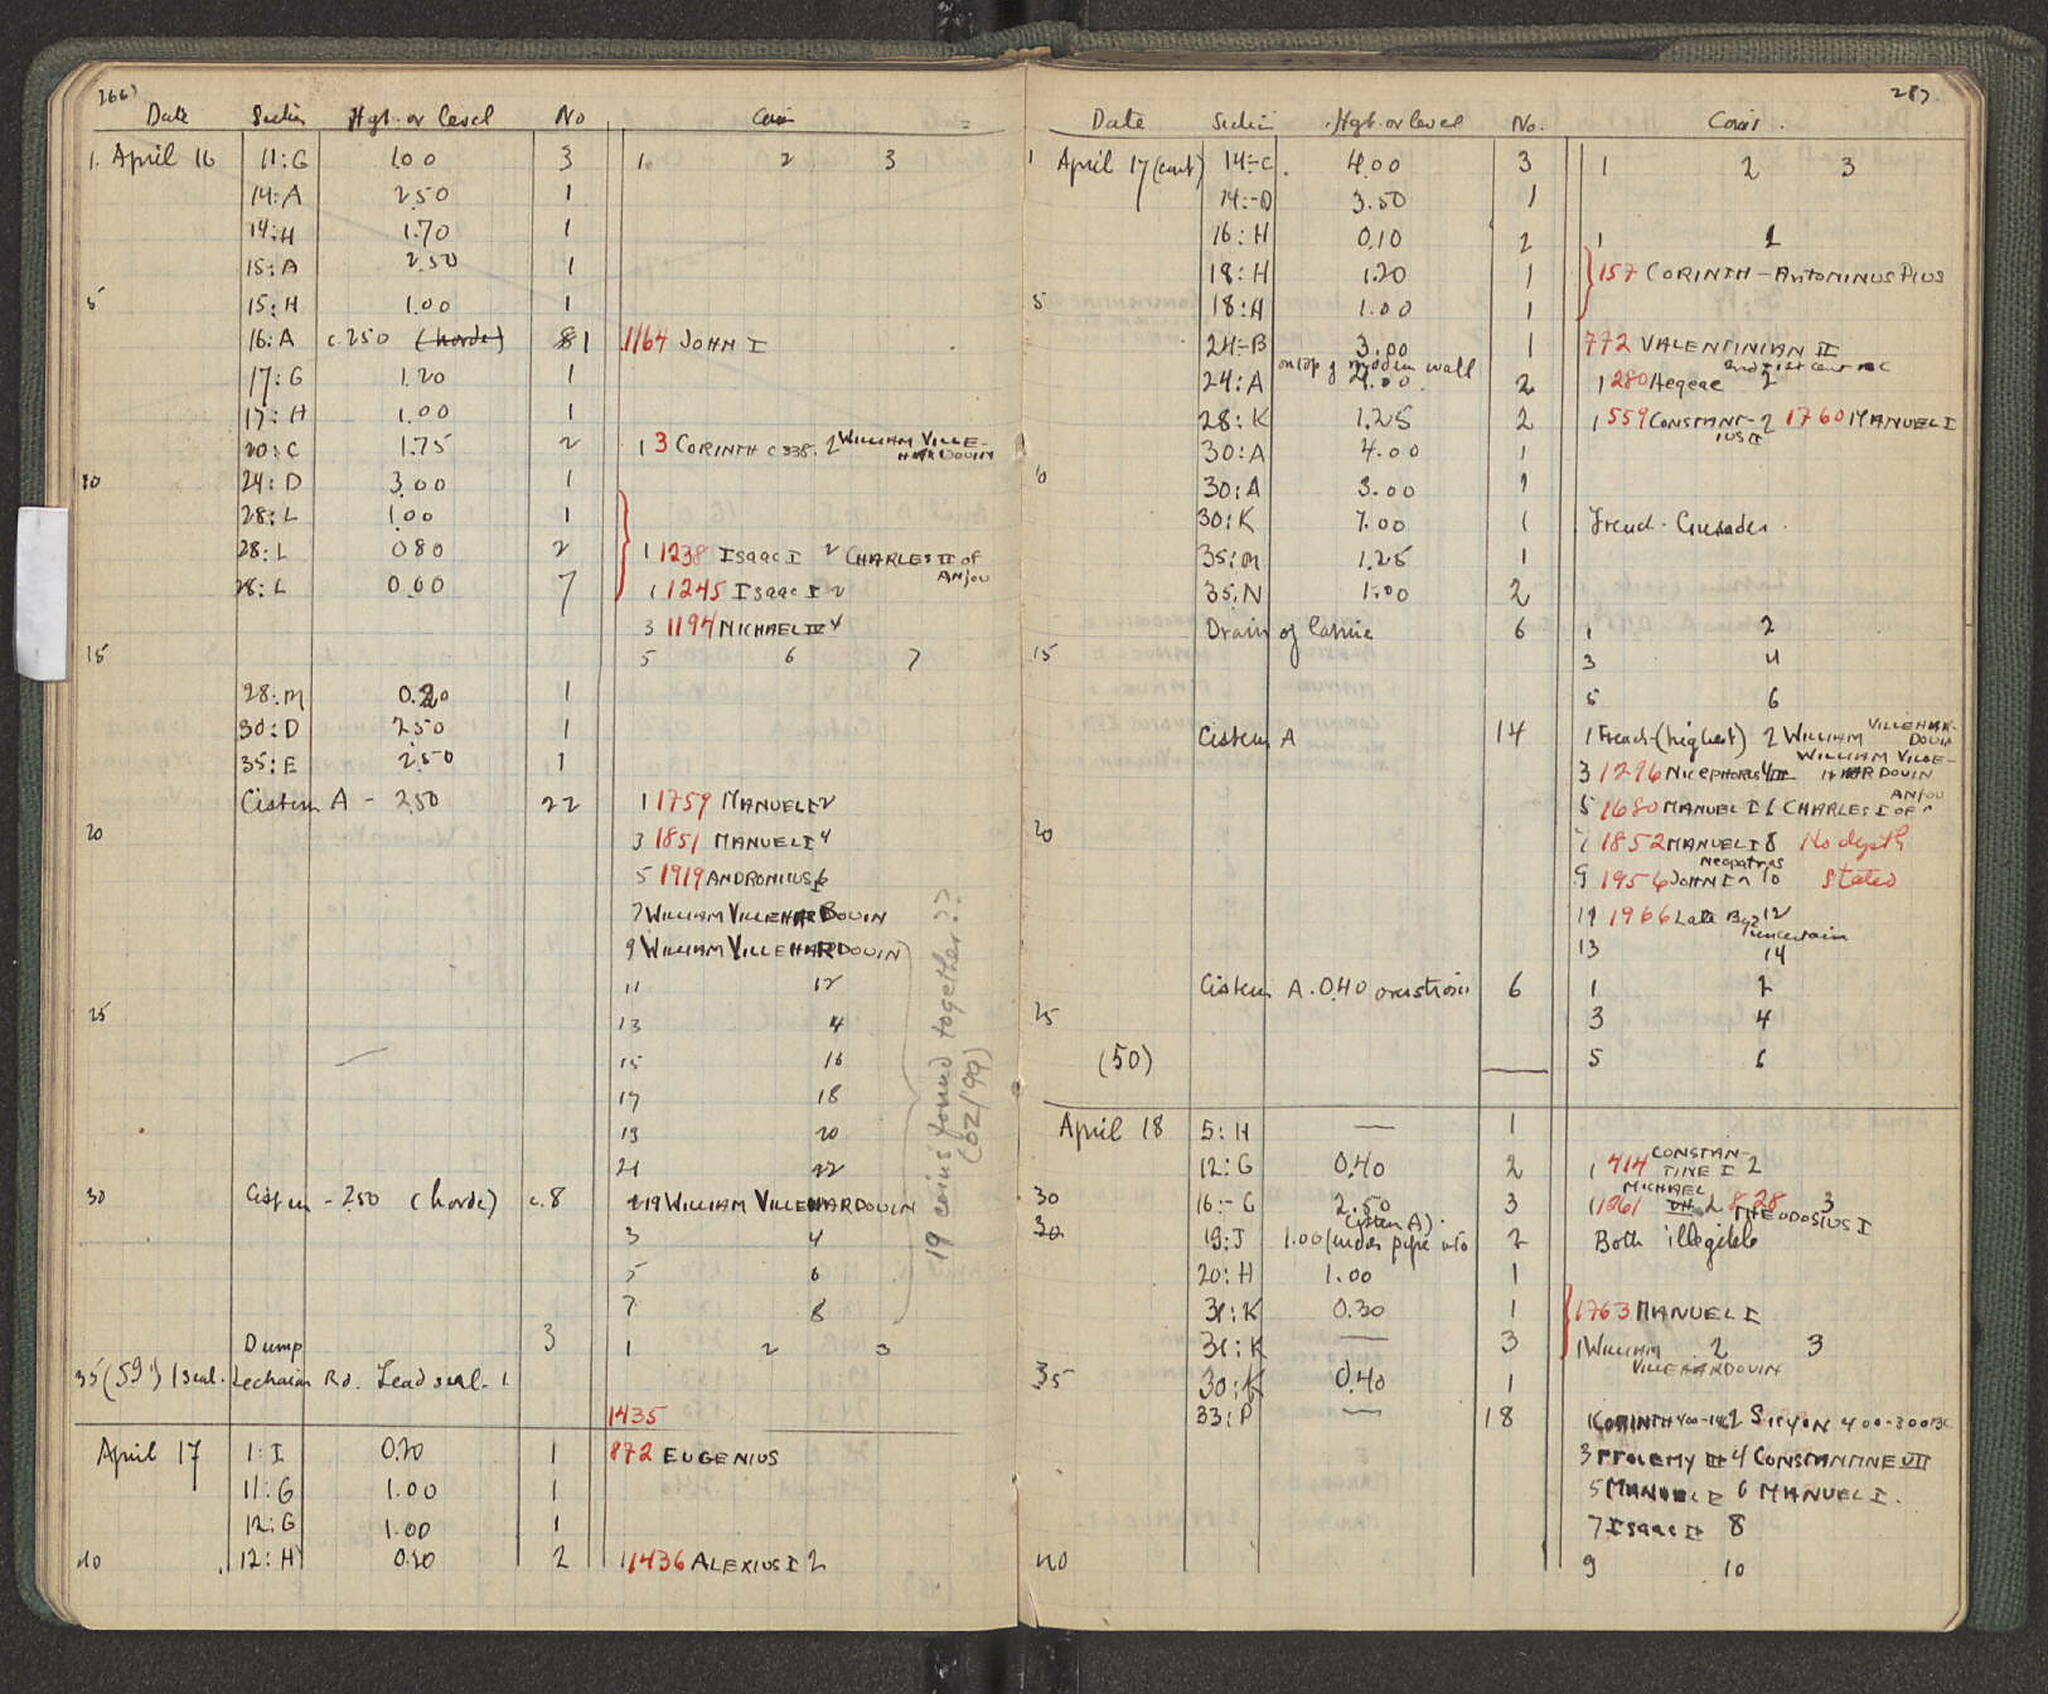 Date Section Hgt. or level No Coin
1. April 16 11:G 1.00 3 1. 2 3
14:A 2.50 1
14:H 1.70 1
15:A 2.50 1
5 15:H 1.00 1
16:A c.250 (horde) 1 1164 JOHN I
17:G 1.20 1
17:H 1.00 1
20:C 1.75 2 1 3 CORINTH c 338. 2 WILLIAM VILLE-
HARDOUIN
10 24:D 3.00 1
28:L 1.00 1
28:L 0.80 2 1 1238 ISaac I 2 CHARLES II of
ANJOU
28:L 0.60 7 1 1245 ISaac I 2
3 1194 MICHAEL IV 4
15 5 6 7
28:M 0.20 1
30:D 2.50 1
35:E 2.50 1
Cistern A - 2.50 22 1 1759 MANUEL I 2
20 3 1851 MANUEL I 4
5 1919 ANDRONICUS I 6
7 WILLIAM VILLEHARDOUIN
9 WILLIAM VILLEHARDOUIN
11 12
25 13 4
15 16
17 18
19 20
21 22
30 Cistern - 2.50 (horde) c.8 19 WILLIAM VILLEHARDOUIN
3 4
5 6
7 8
19 coins found together??
(02/99)
Dump 3 1 2 3
35 (59) 1 seal. Lechaion Rd. Lead seal. 1
1435
April 17 1:I 0.20 1 872 EUGENIUS
11:G 1.00 1
12:G 1.00 1
40 12:H 0.20 2 1 1436 ALEXIUS I 2
287
Date Section Hgt. or level No. Coins.
1 April 17 (cont) 14:-C 4.00 3 1 2 3
14:-D 3.50 1
16:H 0.10 2 1 2
18:H 1.20 1 157 CORINTH - ANTONINUS PIUS
5 18:H 1.00 1
24:-B 3.00 1 772 VALENTINIAN II
on top of modern wall
24:A 4.00 2 1 280 Aegeae 2
28:K 1.25 2 1 559 CONSTANT- 2 1760 MANUEL I
IUS II
30:A 4.00 1
10 30:A 3.00 1
30:K 7.00 1 French Crusader.
35:M 1.25 1
35:N 1.00 2
Drain of 6 1 2
15 3 4
5 6
Cistern A 14 1 French (highest) 2 WILLIAM VILLEHAR-
DOUIN
3 1296 NICEPHORUS III 4 WILLIAM VILLE-
HARDOUIN
5 1680 MANUEL I 6 CHARLES I OF ANJOU
20 7 1852 MANUEL I 8 No depth
9 1956 JOHN I Neopatras 10 Stated
11 1966 Late Byz 12
uncertain
13 14
Cistern A. 0.40 6 1 2
25 3 4
(50) 5 6
April 18 5:H — 1
12:G 0.40 2 1 414 CONSTAN-
TINE I 2
30 16:-G 2.50 3 1 1261 MICHAEL VII 2 828 THEODOSIUS I 3
30 19:J 1.00 (under pipe into Cistern A). 2 Both illegible
20:H 1.00 1
31:K 0.30 1 1763 MANUEL I
31:K — 3 1 WILLIAM 2 3
VILLEHARDOUIN
35 30:K 0.40 1
33:P — 18 1 CORINTH 2 SICYON 400-300 BC
3 PTOLEMY III 4 CONSTANTINE VII
5 MANUEL I 6 MANUEL I.
7 Isaac II 8
40 9 10